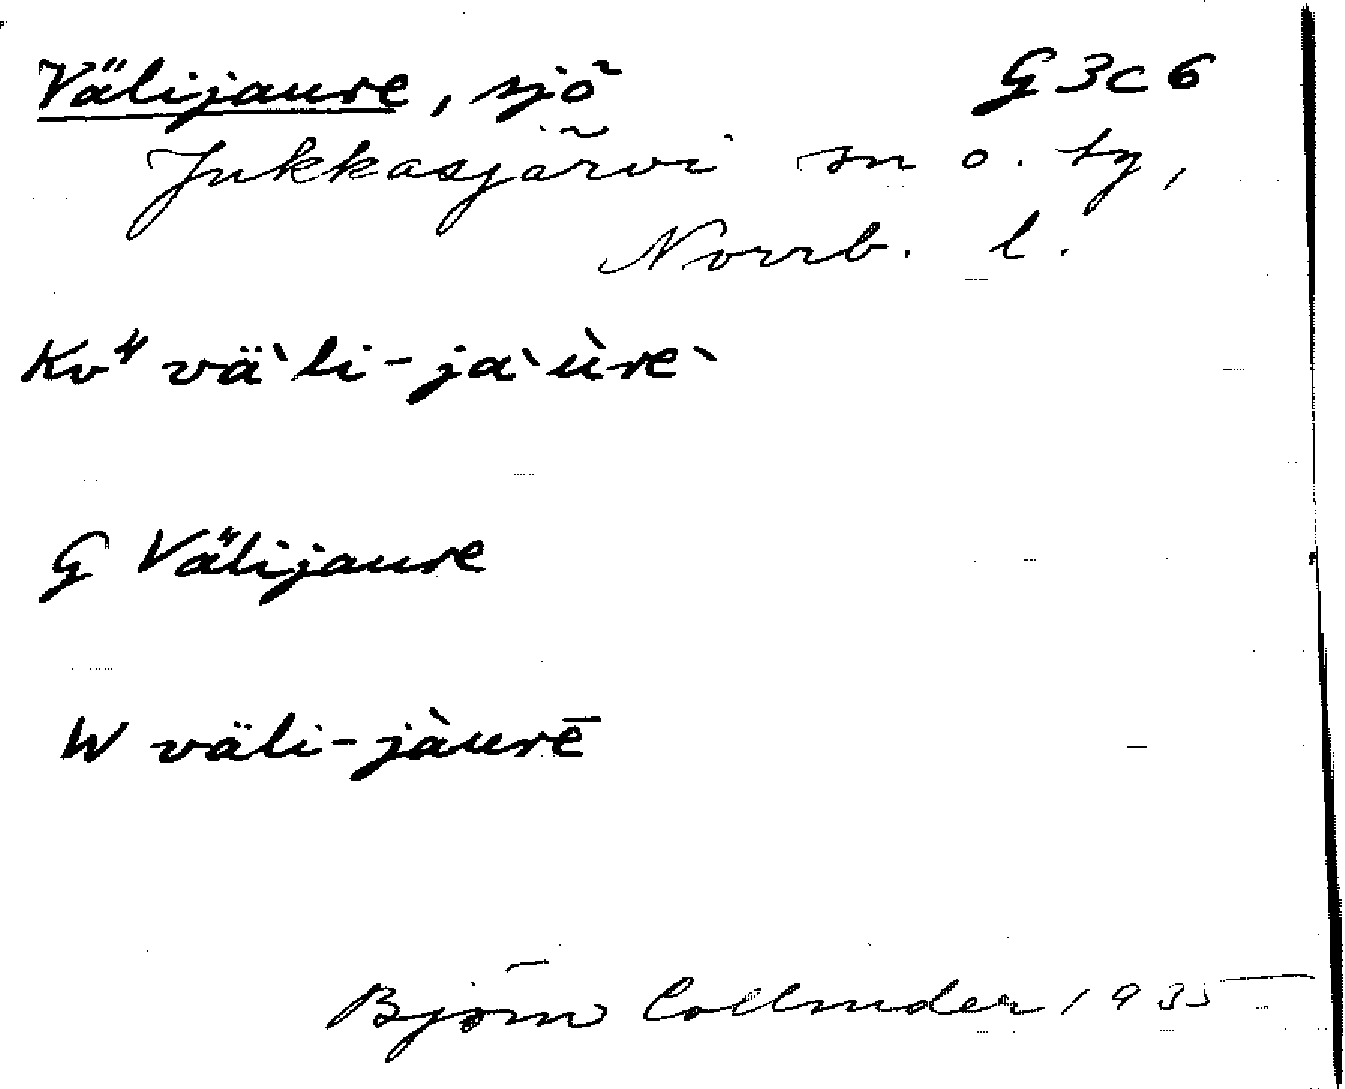 Välijaure, sjö G3c6
Jukkasjärvi sn o. tg,
Norrb. l.
Kv4 vä`li-ja`ùre`
G Välijaure
W väli-jàurē
Björn Collinder 1935